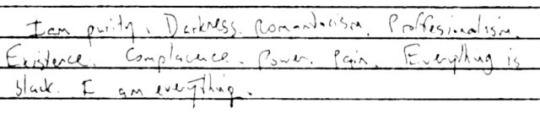 I am purity. Darkness. Romantacism. Proffesionalism.
Existence. Complacence. Power. Pain. Everything is
black. I am everything.